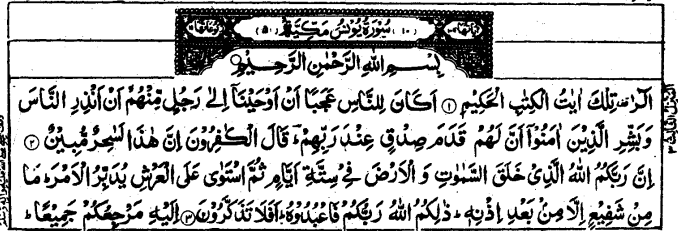 سُوْرَةُ يُوْنُسَ مَكِّيَّةٌ
بِسْمِ اللهِ الرَّحْمٰنِ الرَّحِيْمِ
الٓرٰ تِلْكَ اٰيٰتُ الْكِتٰبِ الْحَكِيْمِ ۝۱ اَكَانَ لِلنَّاسِ عَجَبًا اَنْ اَوْحَيْنَاۤ اِلٰى رَجُلٍ مِّنْهُمْ اَنْ اَنْذِرِ النَّاسَ
وَبَشِّرِ الَّذِيْنَ اٰمَنُوْۤا اَنَّ لَهُمْ قَدَمَ صِدْقٍ عِنْدَ رَبِّهِمْ ؕ قَالَ الْكٰفِرُوْنَ اِنَّ هٰذَا لَسٰحِرٌ مُّبِيْنٌ ۝۲
اِنَّ رَبَّكُمُ اللهُ الَّذِيْ خَلَقَ السَّمٰوٰتِ وَ الْاَرْضَ فِيْ سِتَّةِ اَيَّامٍ ثُمَّ اسْتَوٰى عَلَى الْعَرْشِ يُدَبِّرُ الْاَمْرَ ؕ مَا
مِنْ شَفِيْعٍ اِلَّا مِنْۢ بَعْدِ اِذْنِهٖ ؕ ذٰلِكُمُ اللهُ رَبُّكُمْ فَاعْبُدُوْهُ ؕ اَفَلَا تَذَكَّرُوْنَ ۝۳ اِلَيْهِ مَرْجِعُكُمْ جَمِيْعًا ؕ